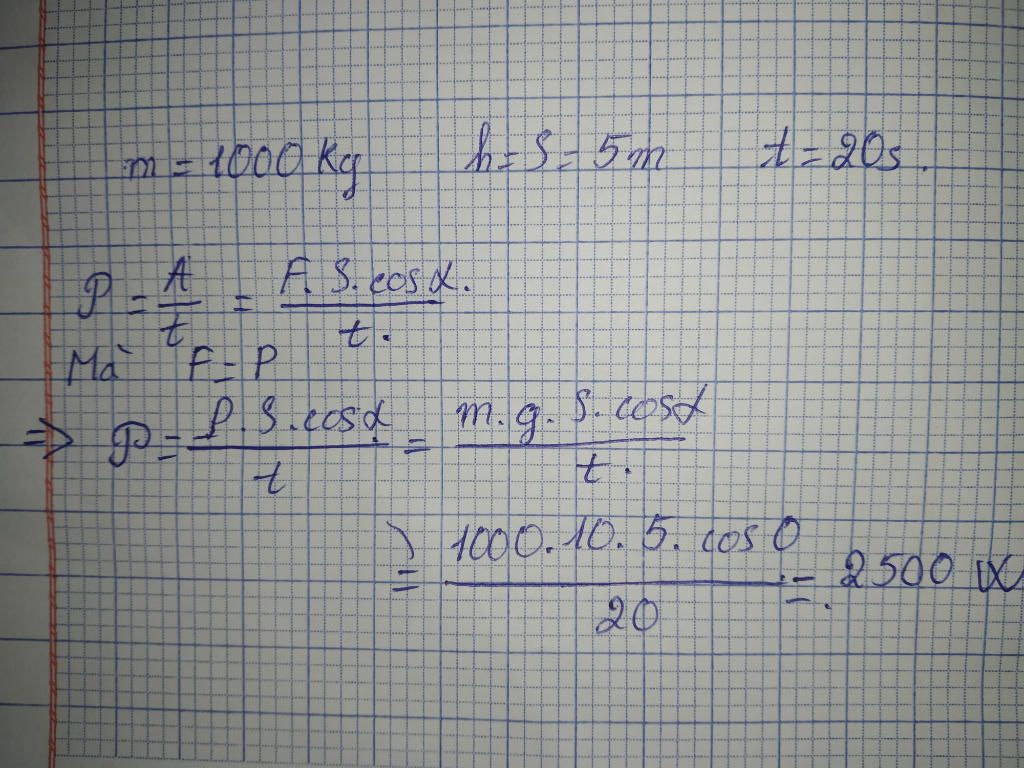 m = 1000 Kg h = S = 5m t = 20s.
P = A/t = F.S.cosα./t.
Mà F = P
=> P = P.S.cosα/t = m.g.S.cosα/t.
= 1000.10.5.cos0/20 = 2500 W